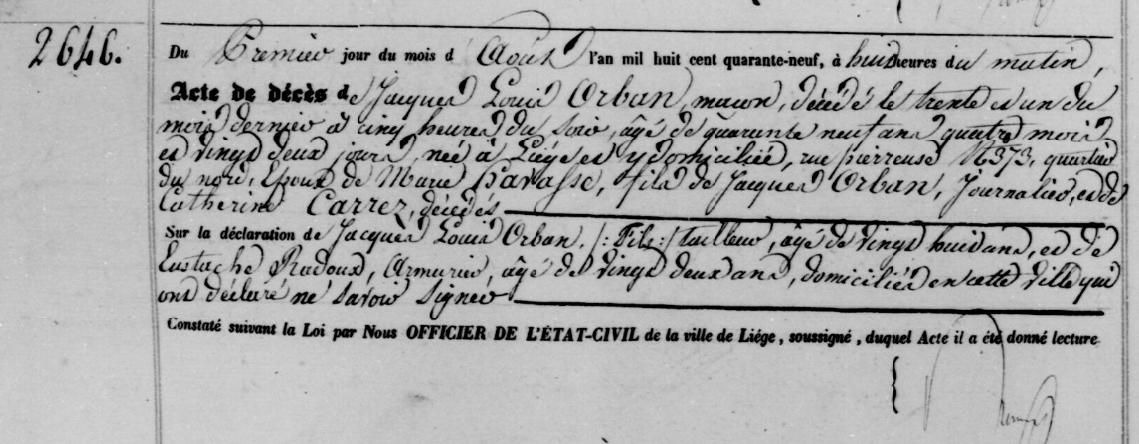 2646.
Du Premier jour du mois d'Août l'an mil huit cent quarante-neuf, à huit heures du matin,
Acte de décès de Jacques Louis Orban, macon, décédé le trente et un du
mois dernier à cinq heures du soir, âgé de quarante neuf ans quatre mois
et vingt deux jours, née à Liége et y domiciliée, rue pierreuse N 373, quartier
du nord, Epoux de Marie Pavasse, fils de Jacques Orban, Journalier, et de
Catherine Carrez, décédés
Sur la déclaration de Jacques Louis Orban, /: Fils :/ tailleur, âgé de vingt huit ans, et de
Eustache Radoux, Armurier, âgé de vingt deux ans, domiciliés en cette ville qui
ont déclaré ne savoir signer
Constaté suivant la Loi par Nous OFFICIER DE L'ÉTAT-CIVIL de la ville de Liége, soussigné, duquel Acte il a été donné lecture